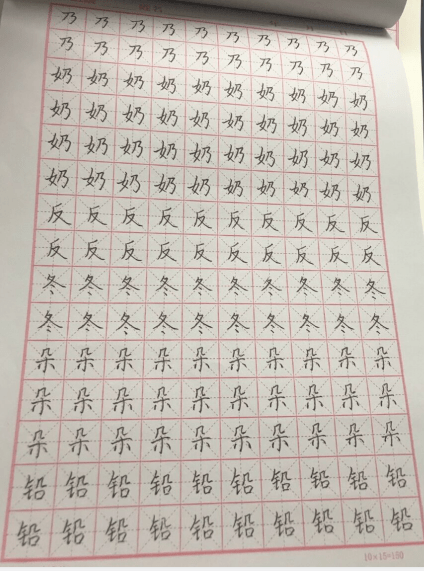 乃乃乃乃乃乃乃乃乃乃
乃乃乃乃乃乃乃乃乃乃
奶奶奶奶奶奶奶奶奶奶
奶奶奶奶奶奶奶奶奶奶
奶奶奶奶奶奶奶奶奶奶
奶奶奶奶奶奶奶奶奶奶
反反反反反反反反反反
反反反反反反反反反反
冬冬冬冬冬冬冬冬冬冬
冬冬冬冬冬冬冬冬冬冬
朵朵朵朵朵朵朵朵朵朵
朵朵朵朵朵朵朵朵朵朵
朵朵朵朵朵朵朵朵朵朵
铅铅铅铅铅铅铅铅铅铅
铅铅铅铅铅铅铅铅铅铅
10×15=150